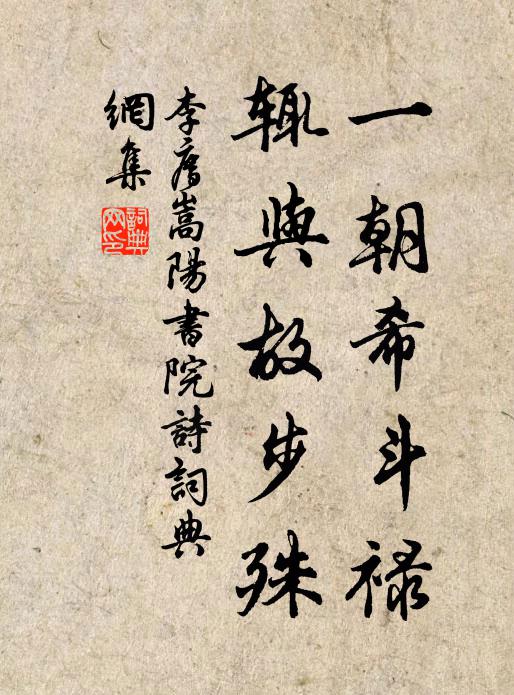 一朝希斗禄
輙與故步殊
李廌嵩陽書院詩詞典
網集
詞典網印